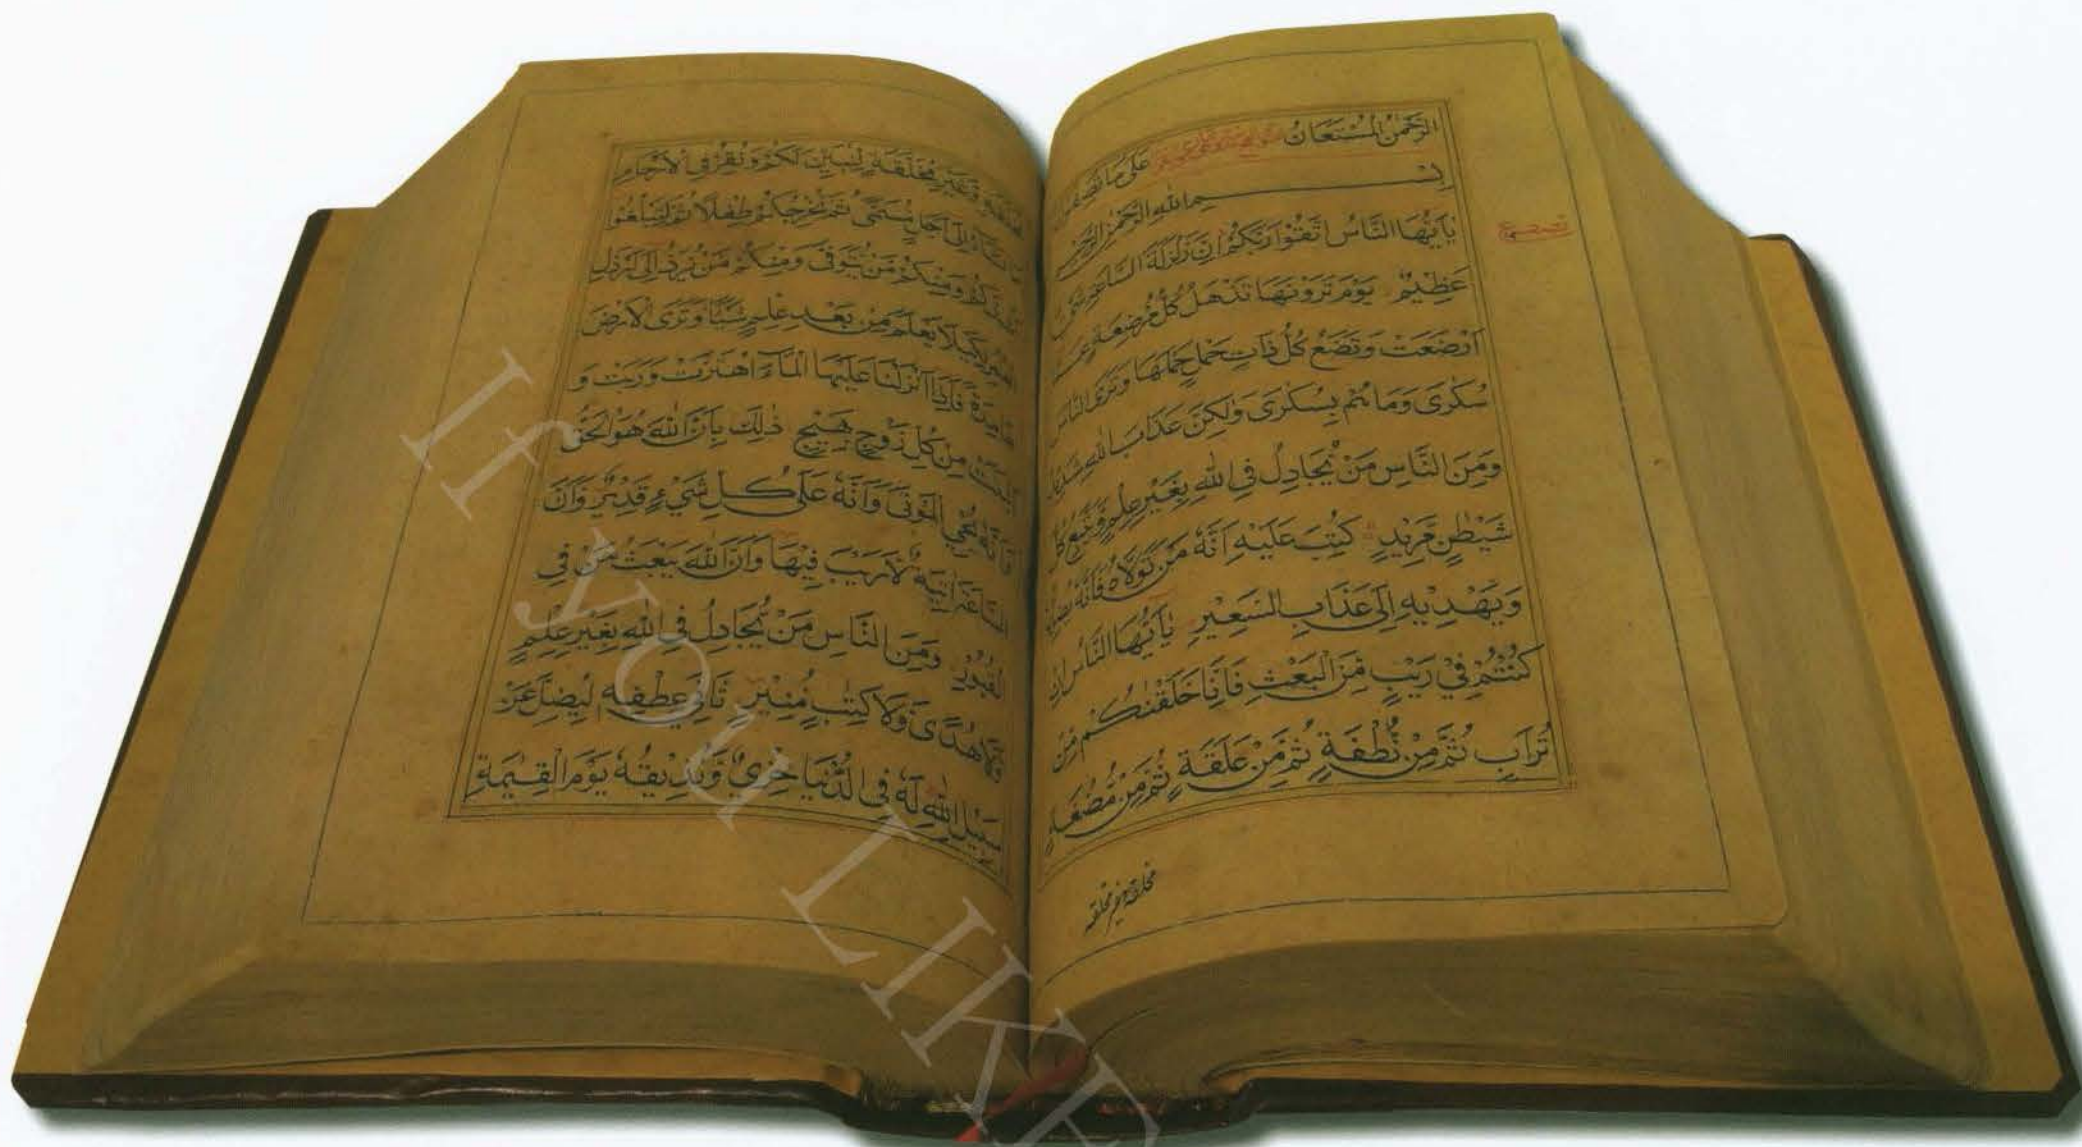 الرَّحْمٰنُ الْمُسْتَعَانُ عَلٰى مَا تَصِفُوْنَ
بِسْمِ اللهِ الرَّحْمٰنِ الرَّحِيْمِ
يٰاَيُّهَا النَّاسُ اتَّقُوْا رَبَّكُمْ اِنَّ زَلْزَلَةَ السَّاعَةِ شَيْءٌ
عَظِيْمٌ يَوْمَ تَرَوْنَهَا تَذْهَلُ كُلُّ مُرْضِعَةٍ عَمَّا
اَرْضَعَتْ وَتَضَعُ كُلُّ ذَاتِ حَمْلٍ حَمْلَهَا وَتَرَى النَّاسَ
سُكٰرٰى وَمَا هُمْ بِسُكٰرٰى وَلٰكِنَّ عَذَابَ اللهِ شَدِيْدٌ
وَمِنَ النَّاسِ مَنْ يُّجَادِلُ فِي اللهِ بِغَيْرِ عِلْمٍ وَّيَتَّبِعُ كُلَّ
شَيْطٰنٍ مَّرِيْدٍ كُتِبَ عَلَيْهِ اَنَّهٗ مَنْ تَوَلَّاهُ فَاَنَّهٗ يُضِلُّهٗ
وَيَهْدِيْهِ اِلٰى عَذَابِ السَّعِيْرِ يٰاَيُّهَا النَّاسُ اِنْ
كُنْتُمْ فِيْ رَيْبٍ مِّنَ الْبَعْثِ فَاِنَّا خَلَقْنٰكُمْ مِّنْ
تُرَابٍ ثُمَّ مِنْ نُّطْفَةٍ ثُمَّ مِنْ عَلَقَةٍ ثُمَّ مِنْ مُّضْغَةٍ
مخلقة وغير مخلقة
مُّخَلَّقَةٍ وَّغَيْرِ مُخَلَّقَةٍ لِّنُبَيِّنَ لَكُمْ وَنُقِرُّ فِي الْاَرْحَامِ
مَا نَشَاءُ اِلٰى اَجَلٍ مُّسَمًّى ثُمَّ نُخْرِجُكُمْ طِفْلًا ثُمَّ لِتَبْلُغُوْا
اَشُدَّكُمْ وَمِنْكُمْ مَّنْ يُّتَوَفّٰى وَمِنْكُمْ مَّنْ يُّرَدُّ اِلٰى اَرْذَلِ
الْعُمُرِ لِكَيْلَا يَعْلَمَ مِنْ بَعْدِ عِلْمٍ شَيْئًا وَتَرَى الْاَرْضَ
هَامِدَةً فَاِذَا اَنْزَلْنَا عَلَيْهَا الْمَاءَ اهْتَزَّتْ وَرَبَتْ وَ
اَنْبَتَتْ مِنْ كُلِّ زَوْجٍ بَهِيْجٍ ذٰلِكَ بِاَنَّ اللهَ هُوَ الْحَقُّ
وَاَنَّهٗ يُحْيِ الْمَوْتٰى وَاَنَّهٗ عَلٰى كُلِّ شَيْءٍ قَدِيْرٌ وَّاَنَّ
السَّاعَةَ اٰتِيَةٌ لَّا رَيْبَ فِيْهَا وَاَنَّ اللهَ يَبْعَثُ مَنْ فِي
الْقُبُوْرِ وَمِنَ النَّاسِ مَنْ يُّجَادِلُ فِي اللهِ بِغَيْرِ عِلْمٍ
وَّلَا هُدًى وَّلَا كِتٰبٍ مُّنِيْرٍ ثَانِيَ عِطْفِهٖ لِيُضِلَّ عَنْ
سَبِيْلِ اللهِ لَهٗ فِي الدُّنْيَا خِزْيٌ وَّنُذِيْقُهٗ يَوْمَ الْقِيٰمَةِ
If you LIKE